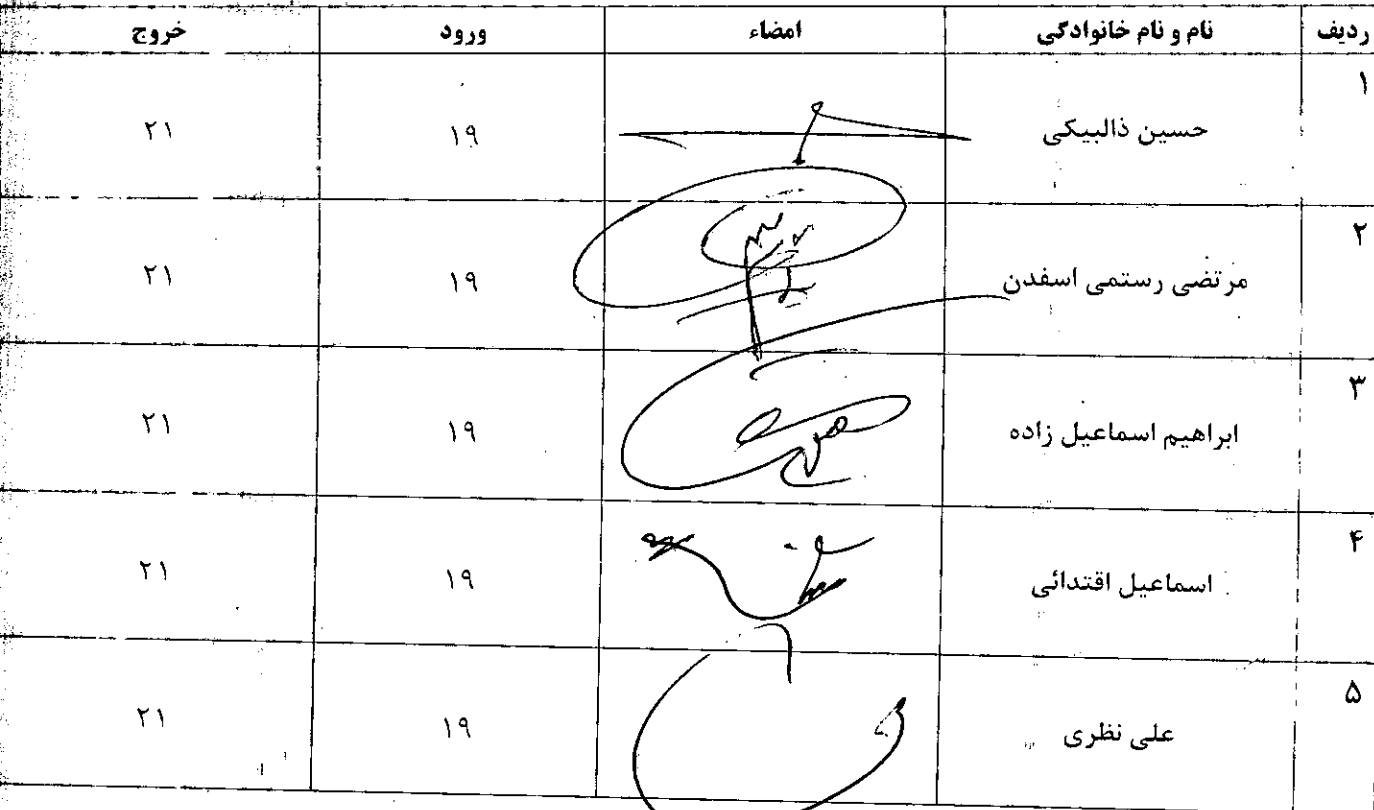 ردیف نام و نام خانوادگی امضاء ورود خروج
۱ حسین ذالبیکی ۱۹ ۲۱
۲ مرتضی رستمی اسفدن ۱۹ ۲۱
۳ ابراهیم اسماعیل زاده ۱۹ ۲۱
۴ اسماعیل اقتدائی ۱۹ ۲۱
۵ علی نظری ۱۹ ۲۱